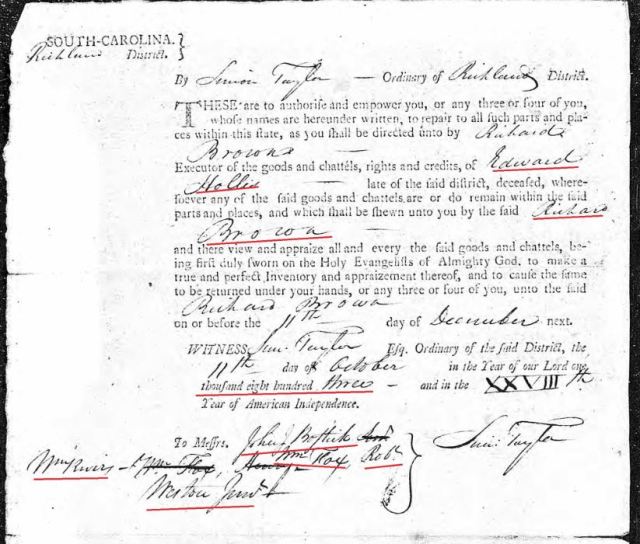 SOUTH-CAROLINA. }
Richland District. }
By Simon Taylor — Ordinary of Richland District.
THESE are to authorise and empower you, or any three or four of you,
whose names are hereunder written, to repair to all such parts and pla-
ces within this state, as you shall be directed unto by Richard
Brown
Executor of the goods and chattels, rights and credits, of Edward
Hollis — late of the said district, deceased, where-
soever any of the said goods and chattels are or do remain within the said
parts and places, and which shall be shewn unto you by the said Richard
Brown
and there view and appraize all and every the said goods and chattels, be-
ing first duly sworn on the Holy Evangelists of Almighty God, to make a
true and perfect Inventory and appraizement thereof, and to cause the same
to be returned under your hands, or any three or four of you, unto the said
Richard Brown
on or before the 11th day of December next.
WITNESS, Sim. Taylor Esq. Ordinary of the said District, the
11th day of October in the Year of our Lord one
thousand eight hundred three — and in the XXVIIIth
Year of American Independence.
To Messrs. John J Bostick
Wm Rivers Wm Fox, Robt
Weston Junr
Sim. Taylor